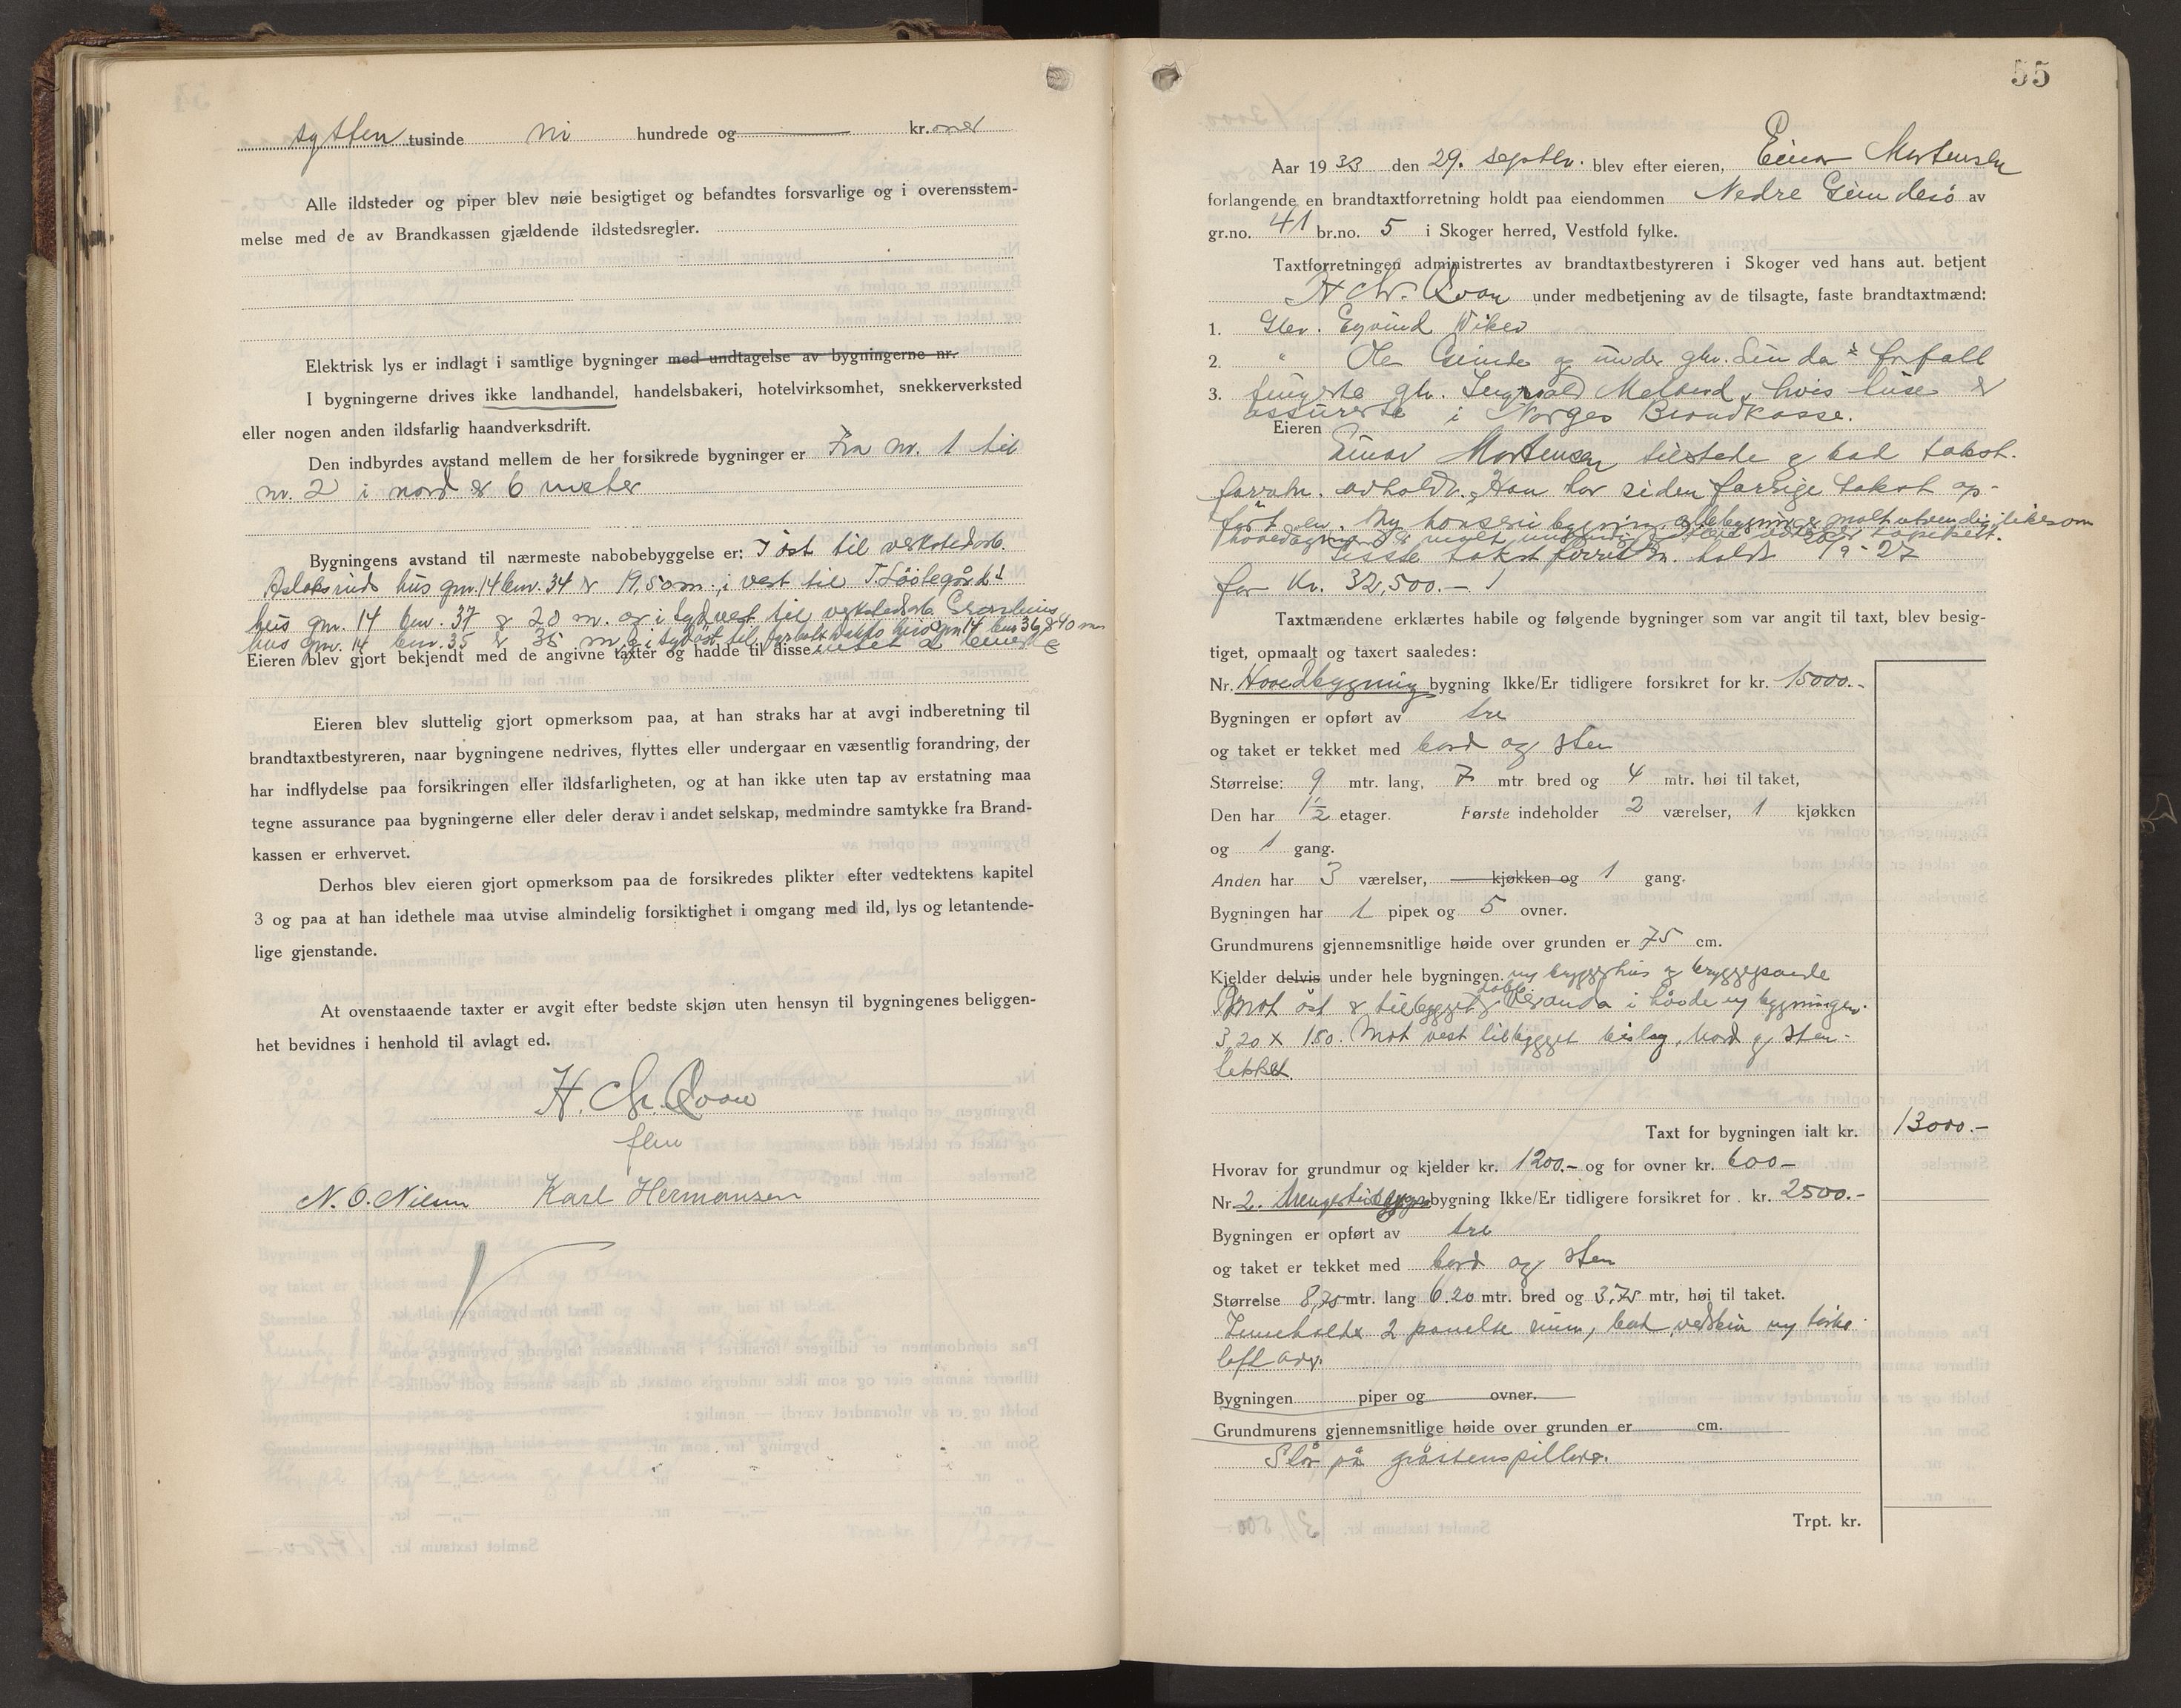 sytten tusinde ni hundrede og kr. oner
Alle ildsteder og piper blev nøie besigtiget og befandtes forsvarlige og i overensstem-
melse med de av Brandkassen gjældende ildstedsregler.
Elektrisk lys er indlagt i samtlige bygninger med undtagelse av bygningerne nr.
I bygningerne drives ikke landhandel, handelsbakeri, hotelvirksomhet, snekkerverksted
eller nogen anden ildsfarlig haandverksdrift.
Den indbyrdes avstand mellem de her forsikrede bygninger er Fra nr. 1 til
nr. 2 i nord er 6 meter
Bygningens avstand til nærmeste nabobebyggelse er: I øst til verkstedarb.
Aslaksruds hus gnr. 14 bnr. 34 er 19,50 m. i vest til
hus gnr. 14 bnr. 37 er 20 m. og i sydvest til verkstedarb.
hus gnr. 14 bnr. 35 er 35 m og i sydøst til hus gnr 14 bnr 36 er 40 m
Eieren blev gjort bekjendt med de angivne taxter og hadde til disse intet å bemerke
Eieren blev sluttelig gjort opmerksom paa, at han straks har at avgi indberetning til
brandtaxtbestyreren, naar bygningene nedrives, flyttes eller undergaar en væsentlig forandring, der
har indflydelse paa forsikringen eller ildsfarligheten, og at han ikke uten tap av erstatning maa
tegne assurance paa bygningerne eller deler derav i andet selskap, medmindre samtykke fra Brand-
kassen er erhvervet.
Derhos blev eieren gjort opmerksom paa de forsikredes plikter efter vedtektens kapitel
3 og paa at han idethele maa utvise almindelig forsiktighet i omgang med ild, lys og letantende-
lige gjenstande.
At ovenstaaende taxter er avgit efter bedste skjøn uten hensyn til bygningenes beliggen-
het bevidnes i henhold til avlagt ed.
H. Chr. Qvan
N. O. Nilsen Karl Hermansen
55
Aar 1933 den 29. septbr. blev efter eieren, Einar Mortensen
forlangende en brandtaxtforretning holdt paa eiendommen Nedre av
gr.no. 41 br.no. 5 i Skoger herred, Vestfold fylke.
Taxtforretningen administrertes av brandtaxtbestyreren i Skoger ved hans aut. betjent
H Chr. Qvan under medbetjening av de tilsagte, faste brandtaxtmænd:
1. Gbr. Eyvind Viker
2. " Ole og under gbr. forfall
3. fungerte gbr. Ingvald hvis huse er
assurerte i Norges Brandkasse.
Eieren
Einar Mortensen tilstede og bad takst-
forretn. avholdt. Han har siden forrige takst op-
ført en ny likesom
Siste takst forretn. holdt 20/9-27
for kr. 32,500.-
Taxtmændene erklærtes habile og følgende bygninger som var angit til taxt, blev besig-
tiget, opmaalt og taxert saaledes:
Nr. Hovedbygning bygning Ikke/Er tidligere forsikret for kr. 15000.-
Bygningen er opført av tre
og taket er tekket med bord og sten
Størrelse: 9 mtr. lang, 7 mtr bred og 4 mtr. høi til taket,
Den har 1½ etager. Første indeholder 2 værelser, 1 kjøkken
og 1 gang.
Anden har 3 værelser, kjøkken og 1 gang.
Bygningen har 1 piper og 5 ovner.
Grundmurens gjennemsnitlige høide over grunden er 75 cm.
Kjelder delvis under hele bygningen. m bryggerhus og bryggepande
Mot øst er tilbygget dobb. veranda i høide m bygningen
3,20 x 1.80. Mot vest tilbygget bislag, bord og sten-
tekket.
Taxt for bygningen ialt kr. 13000.-
Hvorav for grundmur og kjelder kr. 1200.- og for ovner kr. 600-
Nr. 2. bygning Ikke/Er tidligere forsikret for kr. 2500.-
Bygningen er opført av tre
og taket er tekket med bord og sten
Størrelse 8,75 mtr. lang 6.20 mtr. bred og 3,75 mtr, høi til taket.
Inneholder 2 panelte rum, bod, m tørke
loft over.
Bygningen piper og ovner.
Grundmurens gjennemsnitlige høide over grunden er cm.
Står på gråstenspillarer.
Trpt. kr.